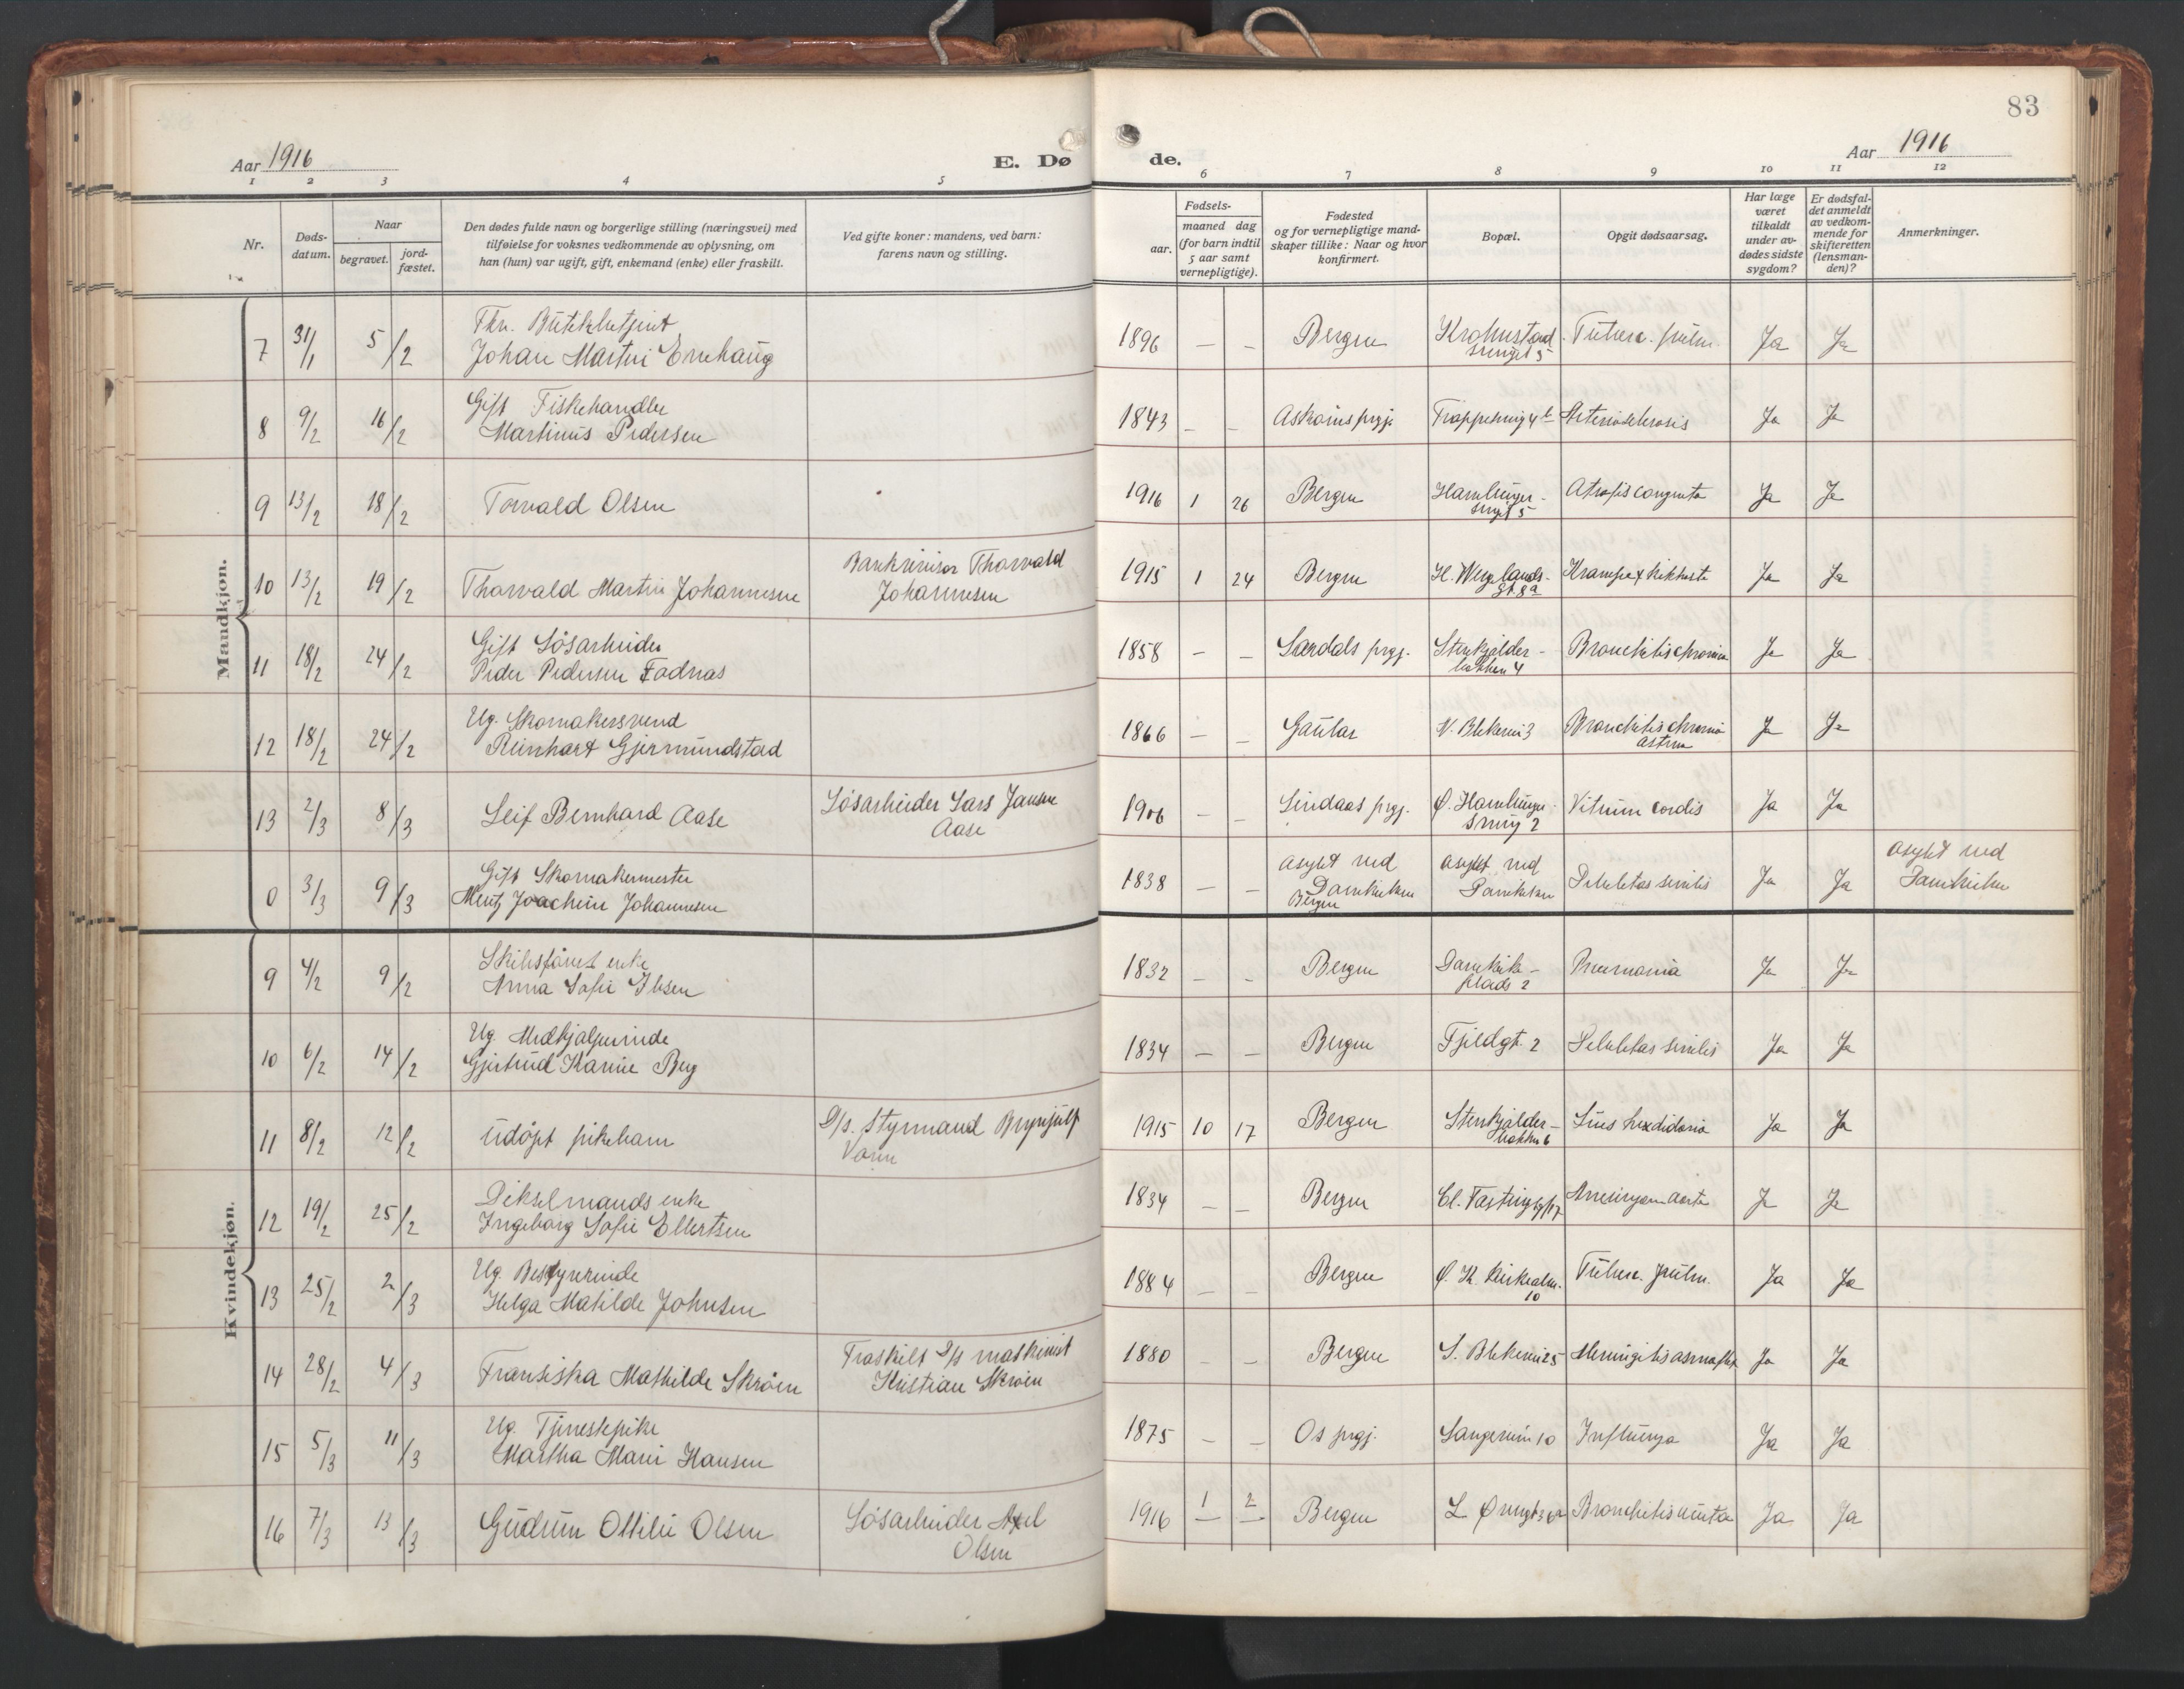 83
Aar 1916
E. Dø
de.
Aar 1916
1 2 3 4 5 6 7 8 9 10 11 12
Nr.
Døds-
datum.
Naar
begravet.
jord-
fæstet.
Den dødes fulde navn og borgerlige stilling (næringsvei) med
tilføielse for voksnes vedkommende av oplysning, om
han (hun) var ugift, gift, enkemand (enke) eller fraskilt.
Ved gifte koner: mandens, ved barn:
farens navn og stilling.
Fødsels-
aar.
maaned dag
(for barn indtil
5 aar samt
vernepligtige).
Fødested
og for vernepligtige mand-
skaper tillike: Naar og hvor
konfirmert.
Bopæl.
Opgit dødsaarsag.
Har læge
været
tilkaldt
under av-
dødes sidste
sygdom?
Er dødsfal-
det anmeldt
av vedkom-
mende for
skifteretten
(lensman-
den)?
Anmerkninger.
Mandkjøn.
7 31/1 5/2 Fhv.
Johan Martin 1896 — — Bergen Tuberc. pulm. Ja Ja
8 9/2 16/2 Gift Fiskehandler
Martinus Pedersen 1843 — — Askøens prgj. Arteriosclerosis Ja Ja
9 13/2 18/2 Torvald Olsen 1916 1 26 Bergen Ja Ja
10 13/2 19/2 Thorvald Martin Johannesen Bankrevisor Thorvald
Johannesen 1915 1 24 Bergen H. Wergelands-
gt. 8a Ja Ja
11 18/2 24/2 Gift Løsarbeider
Peder Pedersen Fodnæs 1858 — — Lærdals prgj. Stenkjelder-
bakken 4 Bronchitis chronica Ja Ja
12 18/2 24/2 Ug. Skomakersvend
Reinhart Gjermundstad 1866 — — Gaular Bronchitis chronica
Ja Ja
13 2/3 8/3 Leif Bernhard Aase Løsarbeider Lars Jansen
Aase 1906 — — Lindaas prgj. Vitium cordis Ja Ja
0 3/3 9/3 Gift Skomakermester
Mentz Joachim Johannesen 1838 — — asylet ved
Domkirken
Bergen asylet ved
Domkirken Debilitas senilis Ja Ja asylet ved
Domkirken
Kvindekjøn.
9 4/2 9/2 enke
Anna Sofie Ibsen 1832 — — Bergen Domkirke-
plads 2 Pneumonia Ja Ja
10 6/2 14/2 Ug.
Gjertrud Karine Berg 1834 — — Bergen Fjeldgt. 2 Debilitas senilis Ja Ja
11 8/2 12/2 udøpt pikebarn D/s. Styrmand Brynjulf
1915 10 17 Bergen Stenkjelder-
bakken 6 Ja Ja
12 19/2 25/2 Dikselmands enke
Ingeborg Sofie Ellertsen 1834 — — Bergen Ja Ja
13 25/2 2/3 Ug. Bestyrerinde
Helga Matilde Johnsen 1884 — — Bergen Tuberc. pulm. Ja Ja
10
14 28/2 4/3 Fransiska Mathilde Skrøen Fraskilt D/s maskinist
Kristian Skrøen 1880 — — Bergen Ja Ja
15 5/3 11/3 Ug. Tjenestepike
Martha Marie Hansen 1875 — — Os prgj. Influenza Ja Ja
16 7/3 13/3 Gudrun Ottilie Olsen Løsarbeider Axel
Olsen 1916 1 2 Bergen Bronchitis acuta Ja Ja